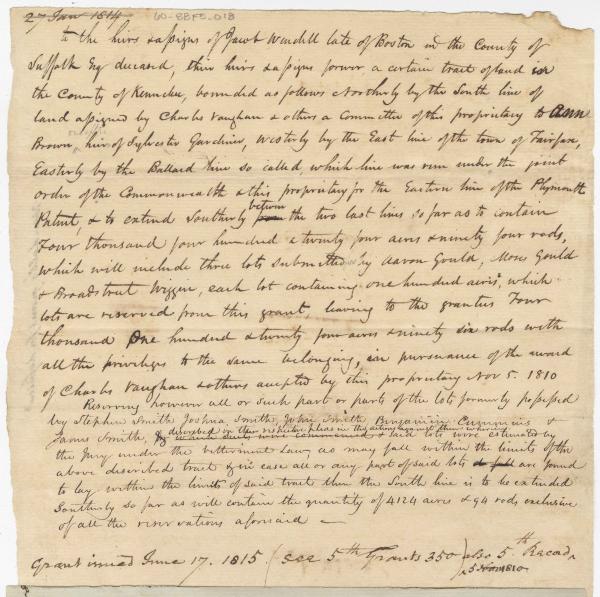 27 Jan 1814 60-88F5-018
To the hirs & assigns of Jacob Wendell late of Boston in the County of
Suffolk Esq deceased, their hirs & assigns forever a certain tract of land in
the County of Kennebec, bounded as follows Northerly by the South line of
land assigned by Charles Vaughan & others a Committee of this propriety to Ann
Brown, hir of Sylvester Gardiner, Westerly by the East line of the town of Fairfax,
Easterly by the Ballard line so called, which line was run under the joint
order of the Commonwealth & this propriety for the Eastern line of the Plymouth
Patent, & to extend Southerly between the two last lines so far as to contain
Four thousand four hundred & twenty four acres & ninety four rods,
which will include three lots submitted by Aaron Gould, Moses Gould
& Broadstreet Wiggin, each lot containing one hundred acres, which
lots are reserved from this grant, leaving to the grantees Four
thousand One hundred & twenty four acres & ninety six rods with
all the privileges to the same belonging, in pursuance of the award
of Charles Vaughan & others accepted by this propriety Nov 5. 1810
Reserving however all or such part or parts of the lots formerly possessed
by Stephen Smith Joshua Smith, John Smith, Benjamin Cummins &
James Smith, described in their respective pleas in the action against them wherein
& said lots were estimated by
the Jury under the betterment Law, as may fall within the limits of the
above discribed tract & in case all or any part of said lots are found
to lay within the limits of said tract then the South line is to be extended
Southerly so far as will contain the quantity of 4124 acres & 94 rods exclusive
of all the reservations aforesaid —
Grant issued June 17. 1815 (see 5th Grants 350) also 5th Records
5 Nov 1810